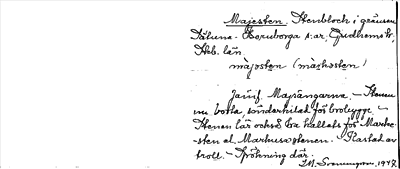 Majesten. Stenblock i gränsen
Tåluna - Hornborga s:ar, Gudhems hd,
Skb. län.
majosten (markosten)
Jämf. Majsängarna. - Stenen
nu borta, sönderkilad för brobygge. -
Stenen lär också ha kallats för Marke-
sten el. Markusastenen. - Kastad av
troll. - Spökning där.
1947